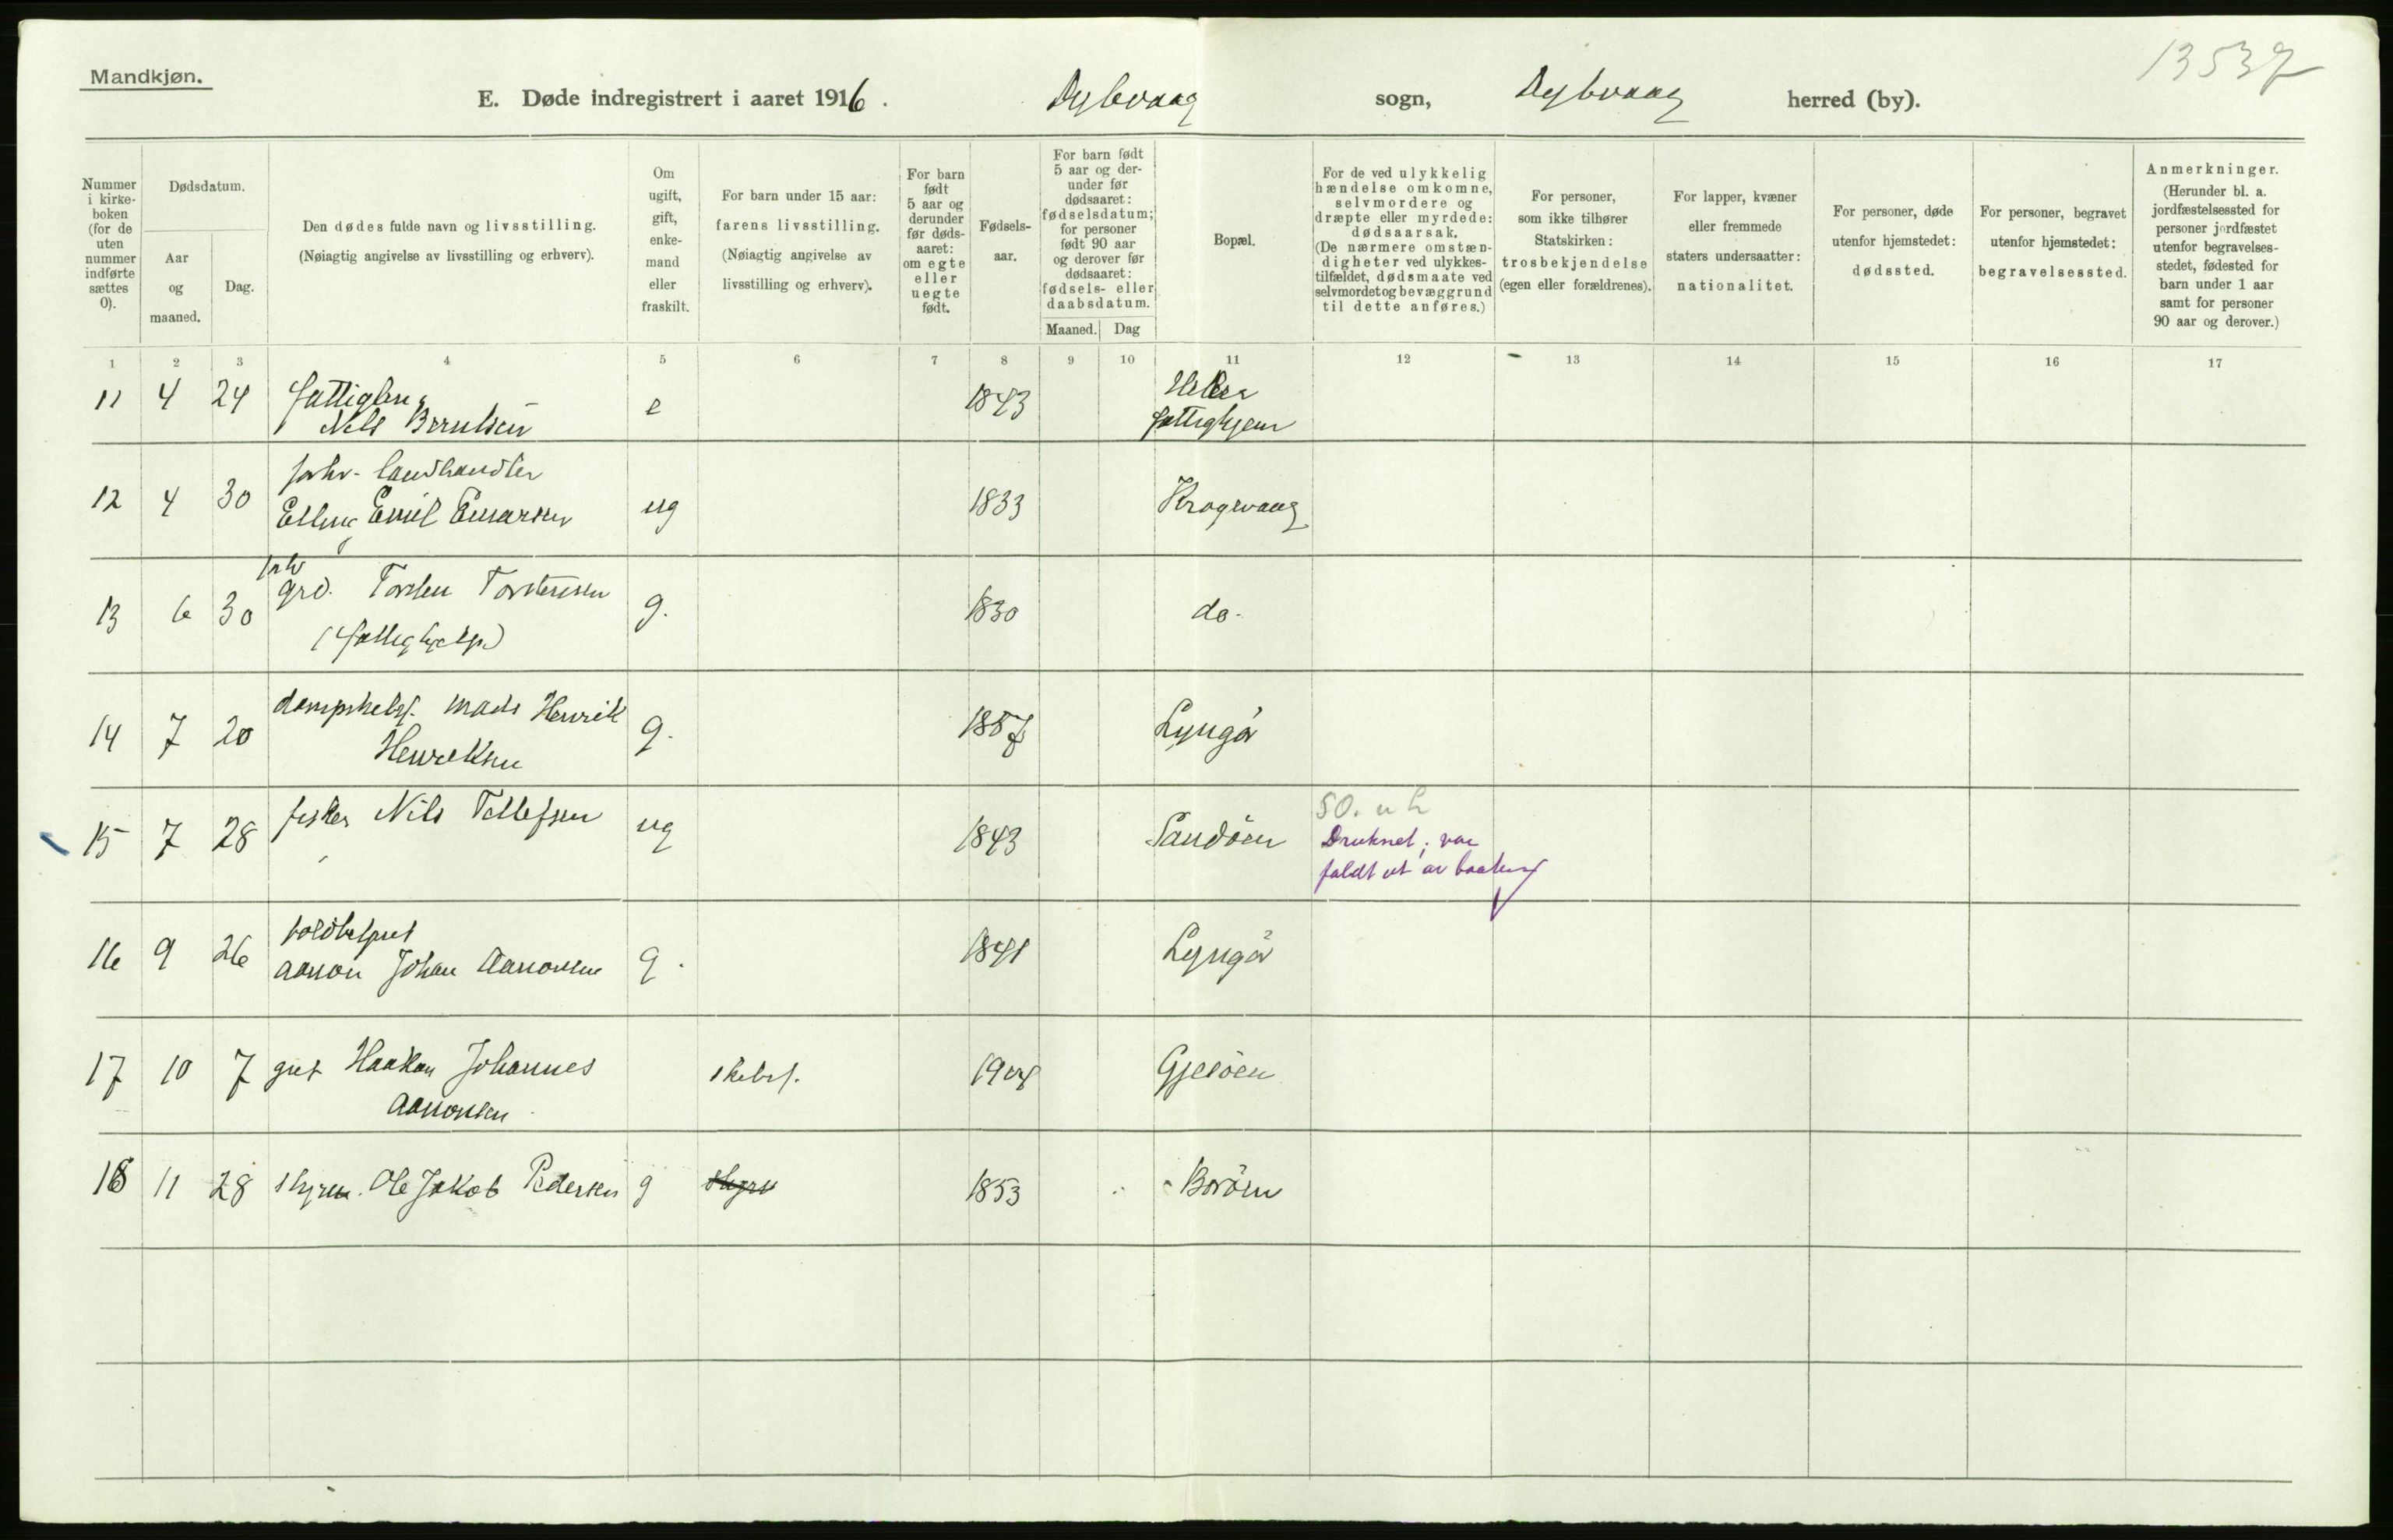 Mandkjøn.
13537
E. Døde indregistrert i aaret 1916.
Dybvaag sogn, Dybvaag herred (by).
Nummer i kirke-boken (for de uten nummer indførte sættes 0).
Dødsdatum.
Aar og maaned.
Dag.
Den dødes fulde navn og livsstilling.
(Nøiagtig angivelse av livsstilling og erhverv).
Om ugift, gift, enke-mand eller fraskilt.
For barn under 15 aar: farens livsstilling.
(Nøiagtig angivelse av livsstilling og erhverv).
For barn født 5 aar og derunder før døds-aaret: om egte eller uegte født.
Fødsels-aar.
For barn født 5 aar og der-under før dødsaaret: fødselsdatum; for personer født 90 aar og derover før dødsaaret: fødsels- eller daabsdatum.
Maaned. Dag
Bopæl.
For de ved ulykkelig hændelse omkomne, selvmordere og dræpte eller myrdede: dødsaarsak.
(De nærmere omstæn-digheter ved ulykkes-tilfældet, dødsmaate ved selvmordet og bevæggrund til dette anføres.)
For personer, som ikke tilhører Statskirken: trosbekjendelse (egen eller forældrenes).
For lapper, kvæner eller fremmede staters undersaatter: nationalitet.
For personer, døde utenfor hjemstedet: dødssted.
For personer, begravet utenfor hjemstedet: begravelsessted.
Anmerkninger.
(Herunder bl. a. jordfæstelsessted for personer jordfæstet utenfor begravelses-stedet, fødested for barn under 1 aar samt for personer 90 aar og derover.)
1 2 3 4 5 6 7 8 9 10 11 12 13 14 15 16 17
11 4 24 Nils e 1843
fattighjem
12 4 30 forhv. landhandler
Emil ug 1833 Krogvaag
forhv
13 6 30 grd. Torsten Torstensen g. 1830 do.
14 7 20 Mads Henrik
Henriksen g. 1857 Lyngör
15 7 28 fisker Nils Tellefsen ug 1843 Sandöen
50. u h
Druknet; var
faldt ut av baaten
16 9 26
Aanon Johan Aanonsen g. 1841 Lyngör
17 10 7 gut Haakon Johannes
Aanonsen skibsf. Gjesöen
18 11 28 Ole Jakob Pedersen g 1853 Boröen